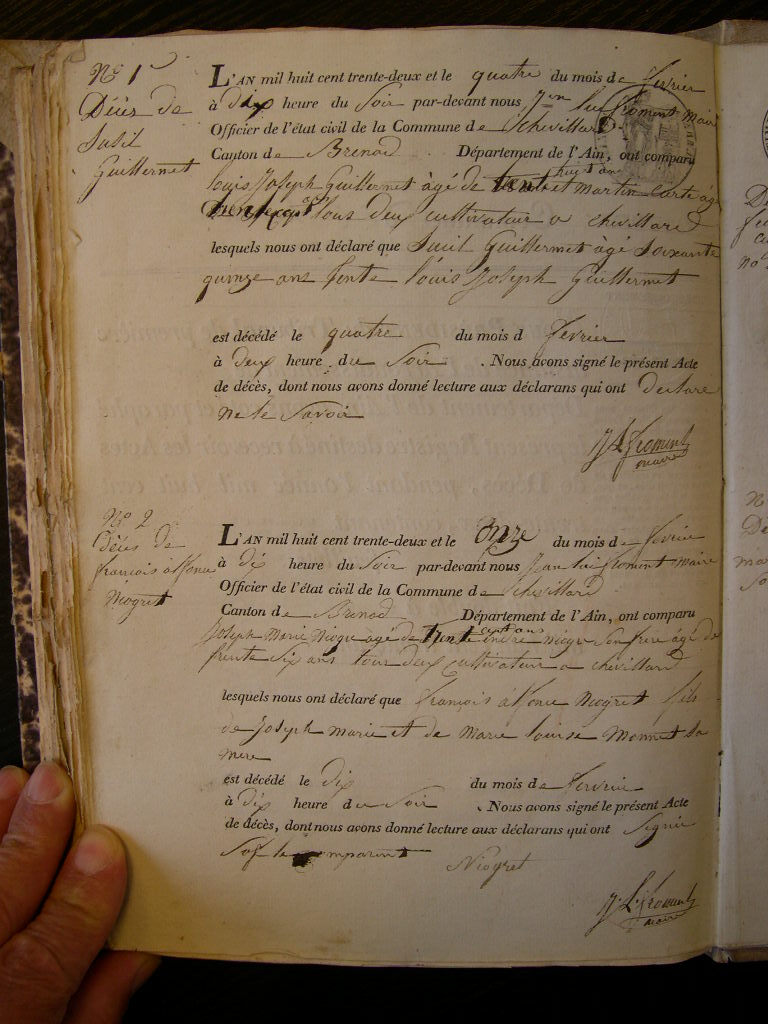 N.º 1
Décès de
Suzil
Guillermet
L'AN mil huit cent trente-deux et le quatre du mois de fevrier
à dix heure du Soir par-devant nous Jean Luc fromont maire
Officier de l'état civil de la Commune de Chevillard
Canton de Brenod Département de l'Ain, ont comparu
huit ans
louis Joseph Guillermet âgé de trente et martin Carte âgé
tous deux cultivateur a chevillard
lesquels nous ont déclaré que Guillermet âgé soixante
quinze ans tente louis Joseph Guillermet
est décédé le quatre du mois d fevrier
à deux heure du Soir . Nous avons signé le présent Acte
de décès, dont nous avons donné lecture aux déclarans qui ont declare
ne le Savoir
J L fromont
maire
N.º 2
Décès de
françois alfonse
Niogret
L'AN mil huit cent trente-deux et le Onze du mois de fevrier
à dix heure du Soir par-devant nous Jean luc fromont maire
Officier de l'état civil de la Commune de Chevillard
Canton de Brenod Département de l'Ain, ont comparu
ans
Joseph Marie age de trente Son frere agé de
trente Six ans tour deux cultivateur a chevillard
lesquels nous ont déclaré que françois alfonse Niogret fils
de Joseph marie et de Marie louise Monnet sa
mere
est décédé le dix du mois de fevrier
à dix heure du Soir . Nous avons signé le présent Acte
de décès, dont nous avons donné lecture aux déclarans qui ont Signé
le comparant Niogret
J. L. fromont
maire